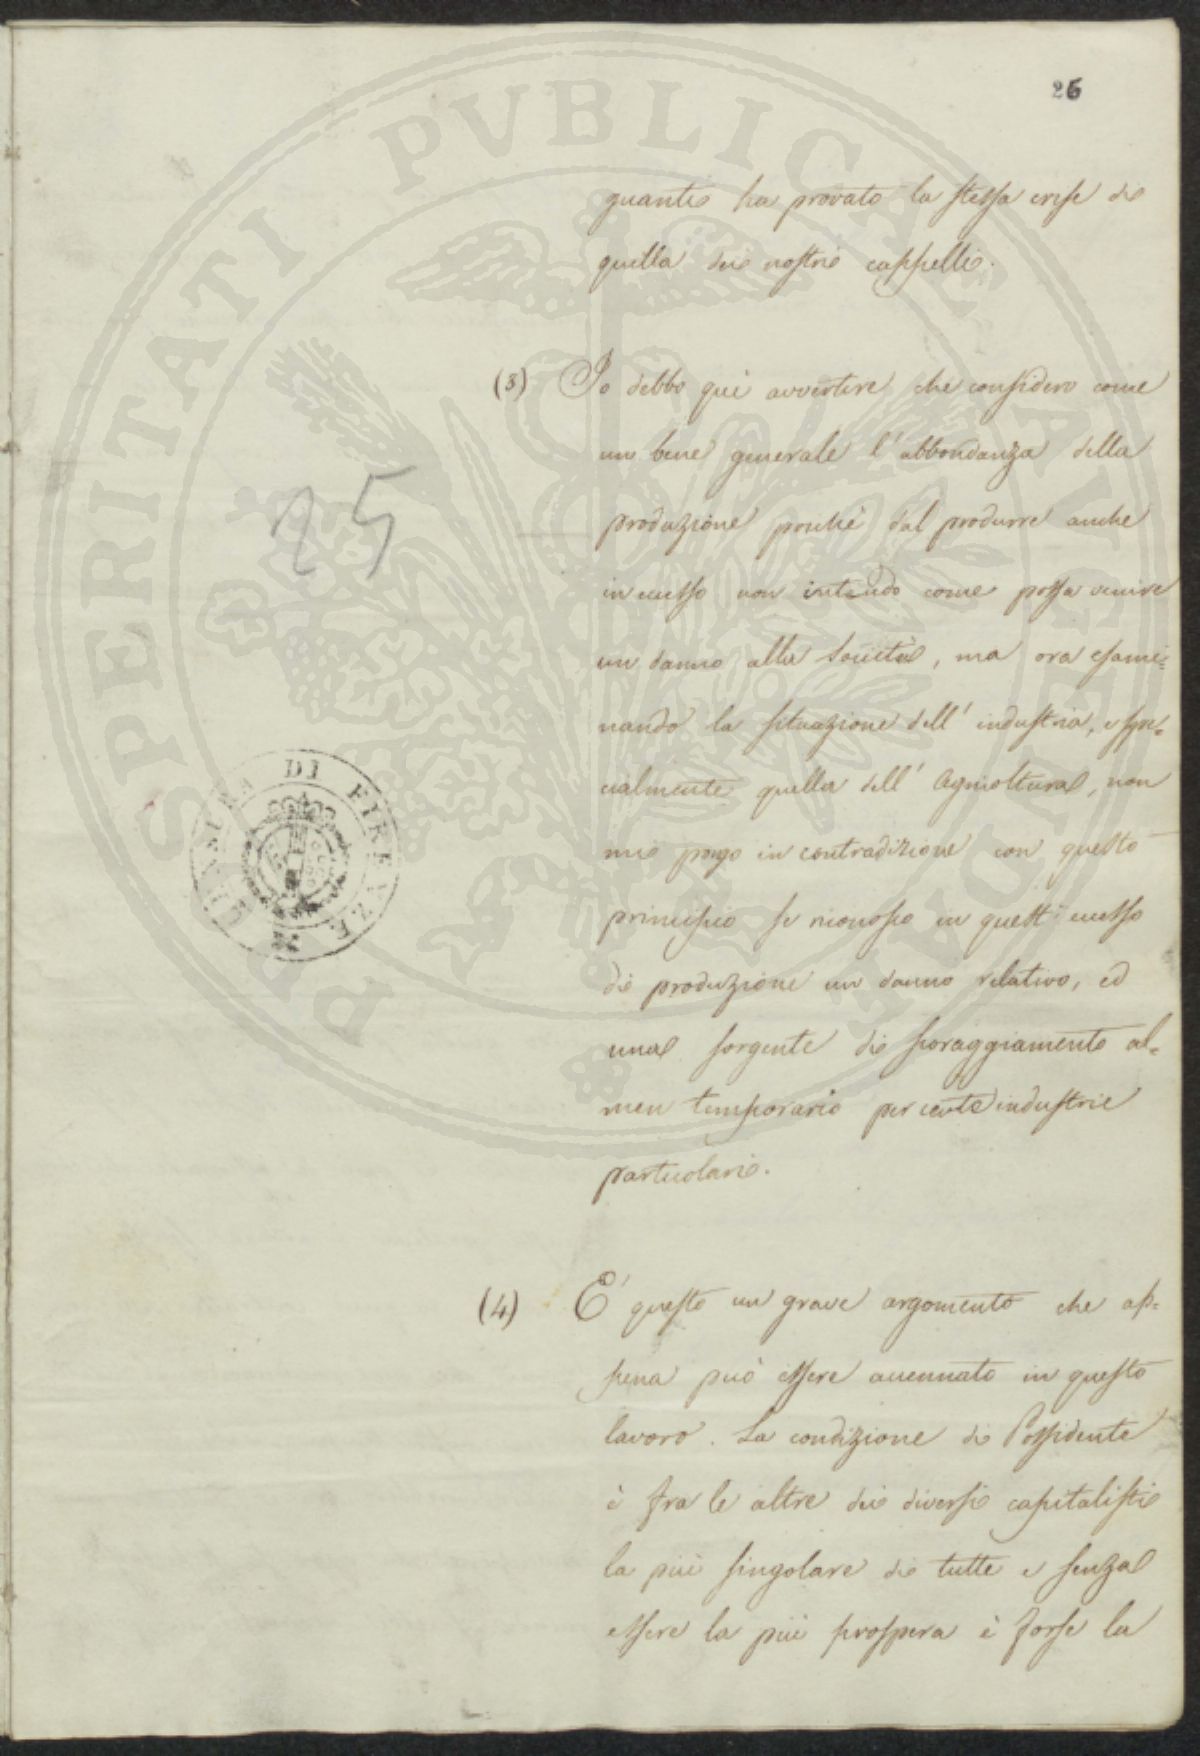 26
quanti ha provato la stessa crise di
quella dei nostri cappelli.
(3) Io debbo qui avvertire che considero come
un bene generale l'abbondanza della
produzione poichè dal produrre anche
in eccesso non intendo come possa venire
un danno alla Società, ma ora esami=
nando la situazione dell'industria, e spe=
cialmente quella dell'Agricoltura, non
mi pongo in contradizione con questo
principio se riconosco in questi eccesso
di produzione un danno relativo, ed
una sorgente di scoraggiamento al=
men temporario per certe industrie
particolari.
25
CENSURA DI FIRENZE
(4) E' questo un grave argomento che ap=
pena può essere accennato in questo
lavoro. La condizione di Possidente
è fra le altre dei diversi capitalisti
la più singolare di tutte e senza
essere la più prospera è forse la
PROSPERITATI PVBLICAE AVGENDAE